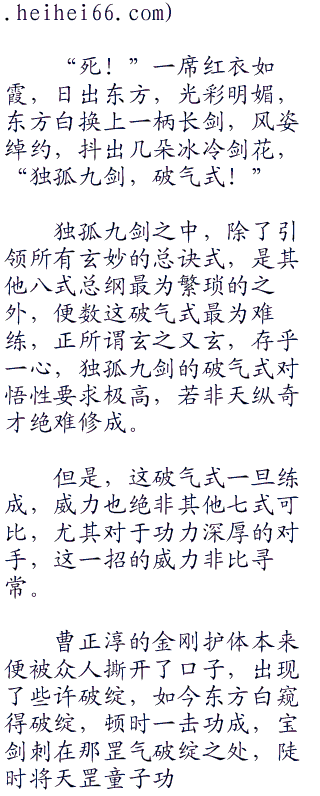 .heihei66.com)
“死！”一席红衣如
霞，日出东方，光彩明媚，
东方白换上一柄长剑，风姿
绰约，抖出几朵冰冷剑花，
“独孤九剑，破气式！”
独孤九剑之中，除了引
领所有玄妙的总诀式，是其
他八式总纲最为繁琐的之
外，便数这破气式最为难
练，正所谓玄之又玄，存乎
一心，独孤九剑的破气式对
悟性要求极高，若非天纵奇
才绝难修成。
但是，这破气式一旦练
成，威力也绝非其他七式可
比，尤其对于功力深厚的对
手，这一招的威力非比寻
常。
曹正淳的金刚护体本来
便被众人撕开了口子，出现
了些许破绽，如今东方白窥
得破绽，顿时一击功成，宝
剑刺在那罡气破绽之处，陡
时将天罡童子功